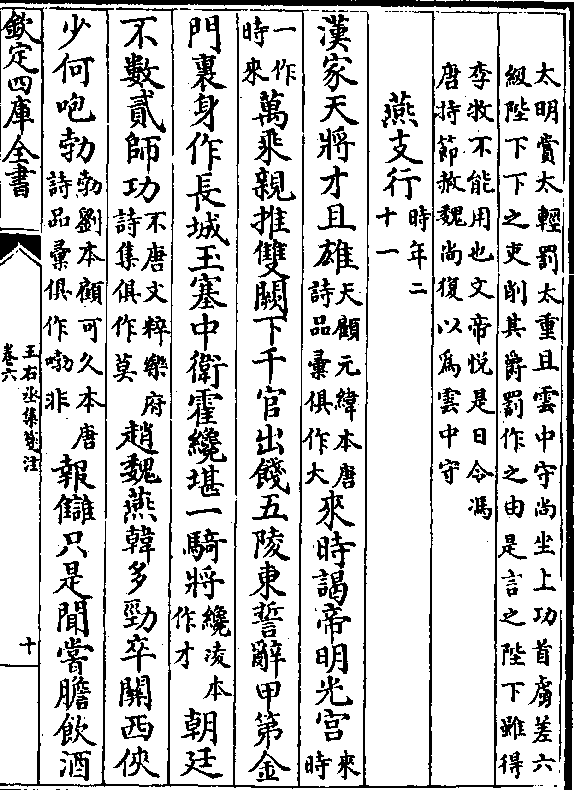 太明賞太輕罰太重且雲中守尚坐上功首虜差六
級陛下下之吏削其爵罰作之由是言之陛下雖得
李牧不能用也文帝悦是日令馮
唐持節赦魏尚復以爲雲中守
燕支行時年二
十一
漢家天將才且雄天顧元緯本唐
詩品彚俱作大來時謁帝明光宫來
時
一作
時來萬乘親推雙闕下千官出餞五陵東誓辭甲第金
門裏身作長城玉塞中衛霍纔堪一騎將纔凌本
作才朝廷
不數貳師功不唐文粹樂府
詩集俱作莫趙魏燕韓多勁卒關西俠
少何咆勃勃劉本顧可久本唐
詩品彚俱作㪍非報讎只是聞嘗膽飲酒
欽定四庫全書
王右丞集箋注
卷六
十